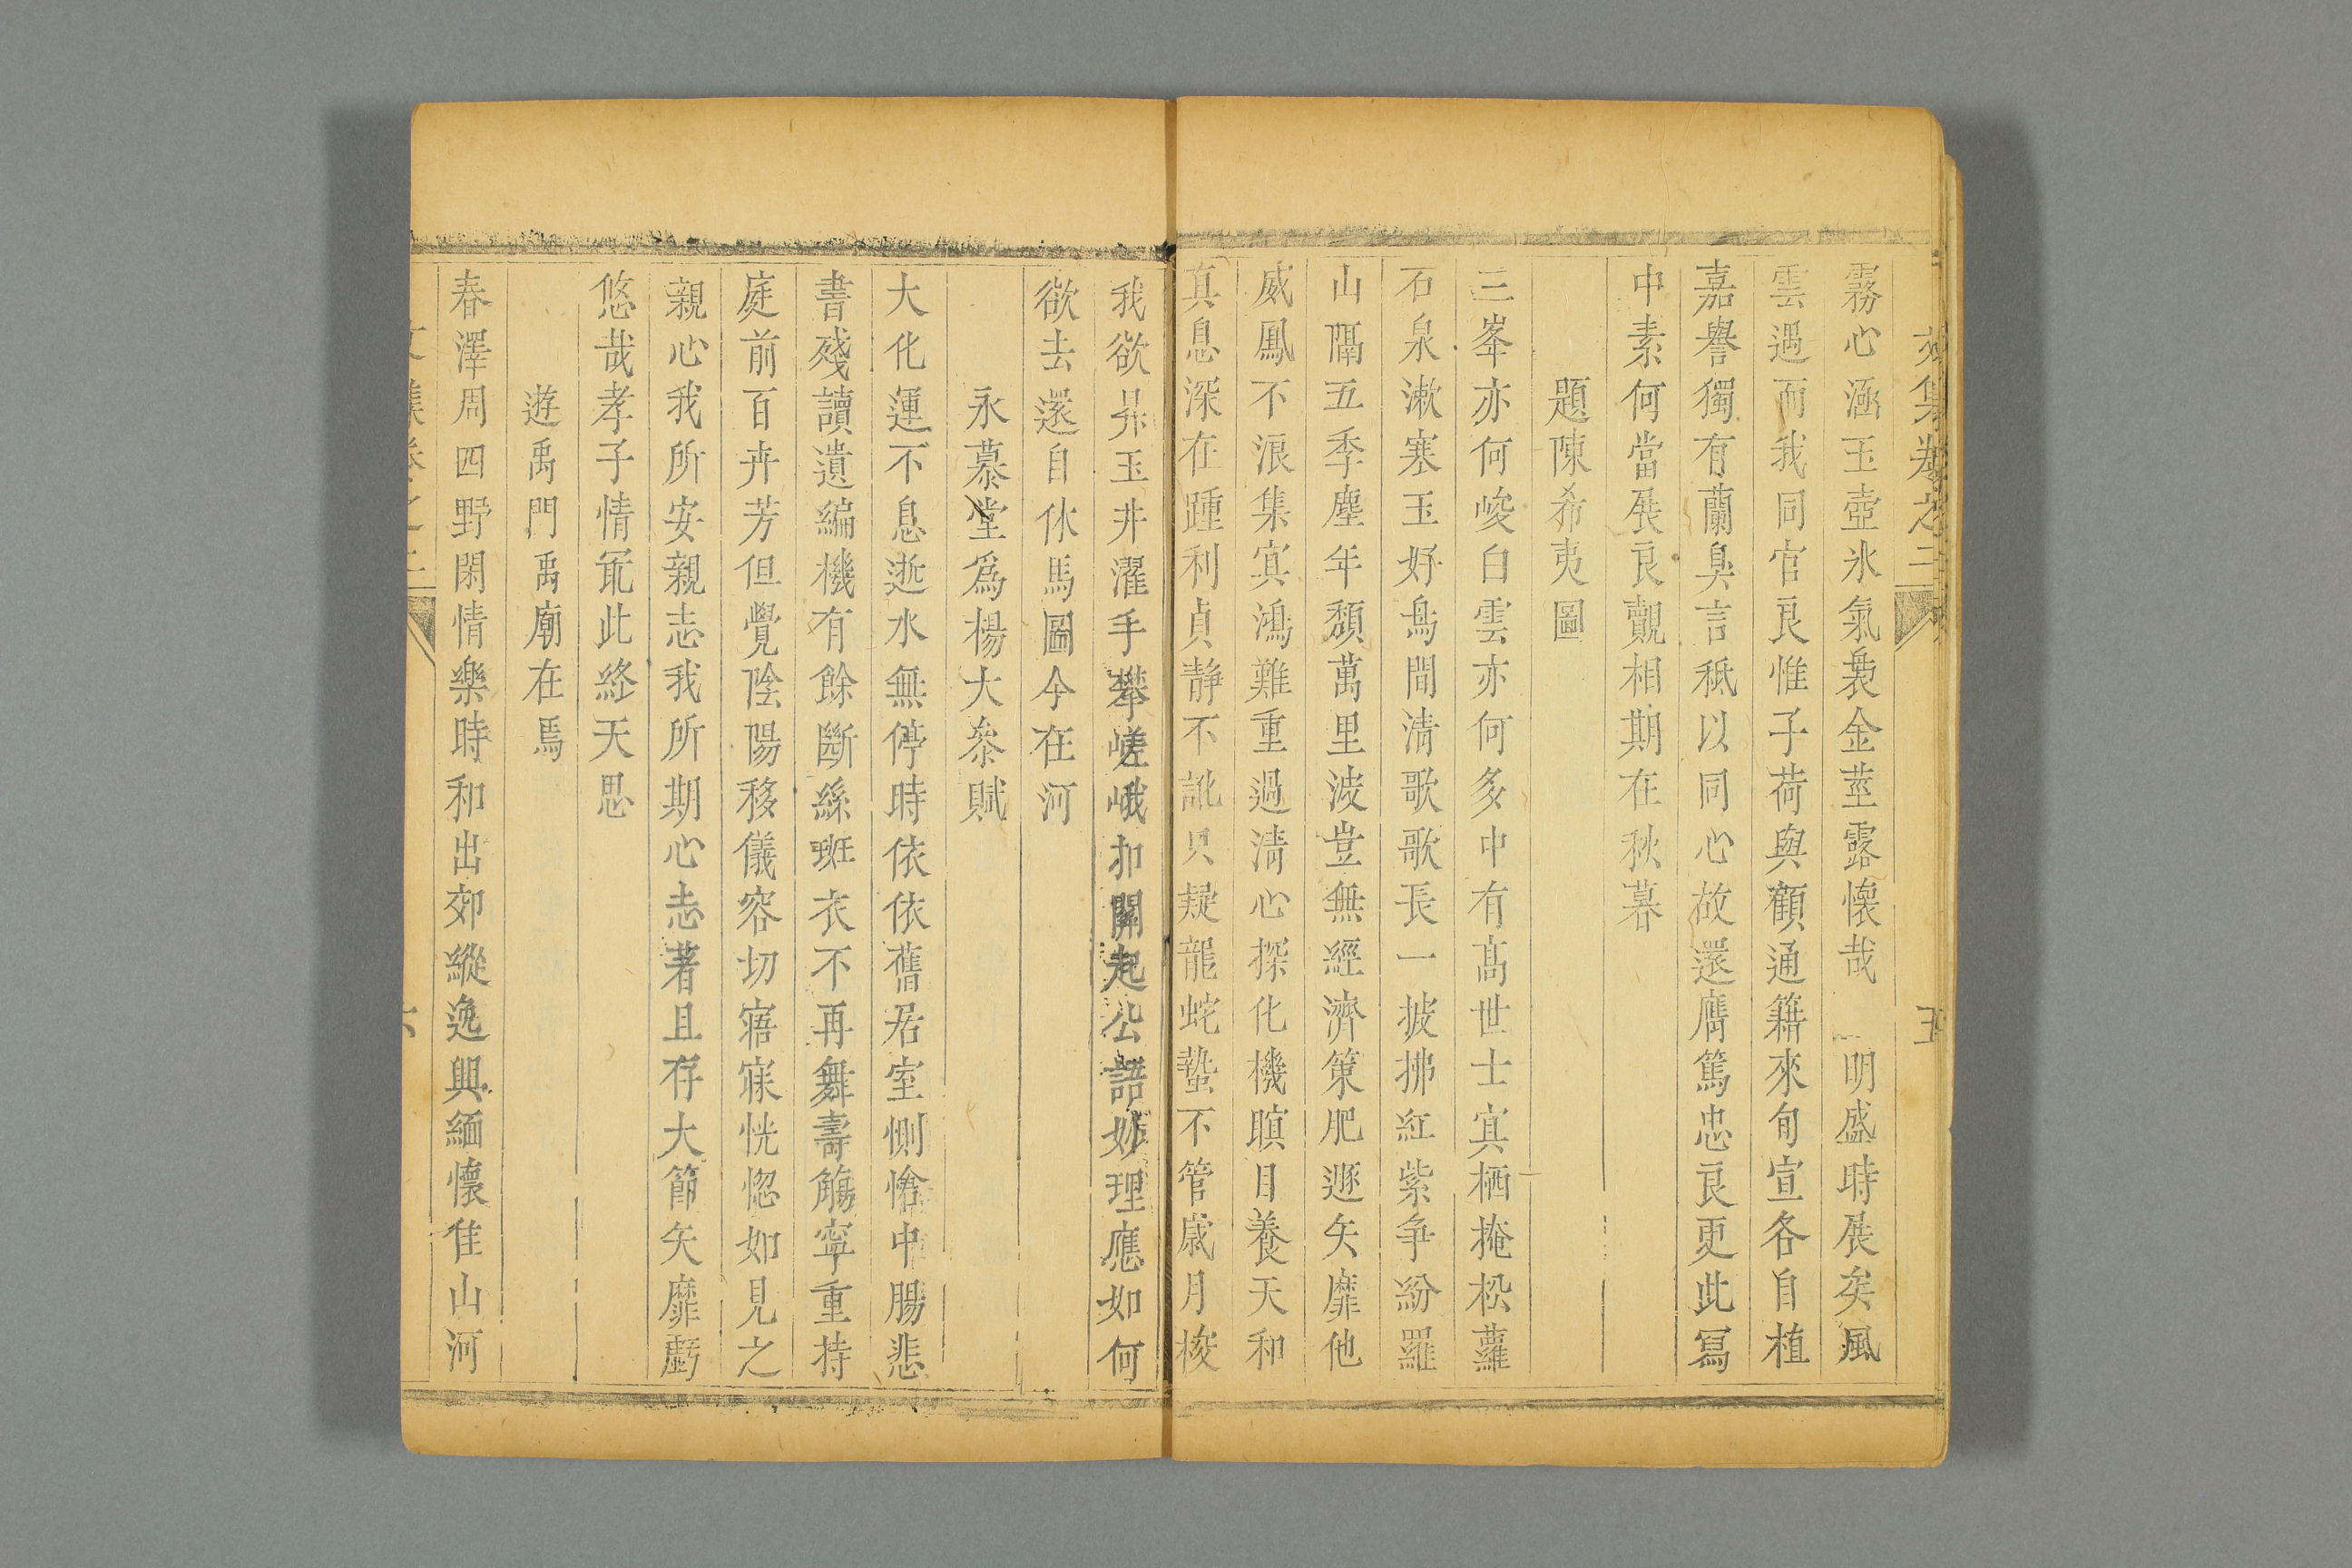 文集卷之三
五
霧心涵玉壺氷氣裊金莖露懷哉 明盛時展矣風
雲遇而我同官良惟子荷與顧通籍來旬宣各自植
嘉譽獨有蘭臭言秪以同心故還膺篤忠良更此冩
中素何當展良覿相期在秋暮
題陳希夷圖
三峯亦何峻白雲亦何多中有髙世士寘栖掩松蘿
石泉漱寒玉好鳥間清歌歌長一披拂紅紫爭紛羅
山隔五季塵年頽萬里波豈無經濟策肥遯矢靡他
威鳳不浪集寘鴻難重過清心探化機瞋目養天和
真息深在踵利貞靜不訛只疑龍蛇蟄不管歲月梭
我欲昇玉井濯手攀嵯峨扣關起公語妙理應如何
欲去還自休馬圖今在河
永慕堂爲楊大叅賦
大化運不息逝水無停時依依舊居室惻愴中腸悲
書殘讀遺編機有餘斷絲斑衣不再舞壽觴寧重持
庭前百卉芳但覺陰陽移儀容切寤寐恍惚如見之
親心我所安親志我所期心志著且存大節矢靡虧
悠哉孝子情冞此終天思
遊禹門禹廟在焉
春澤周四野閑情樂時和出郊縱逸興緬懷隹山河
文集卷之三
六